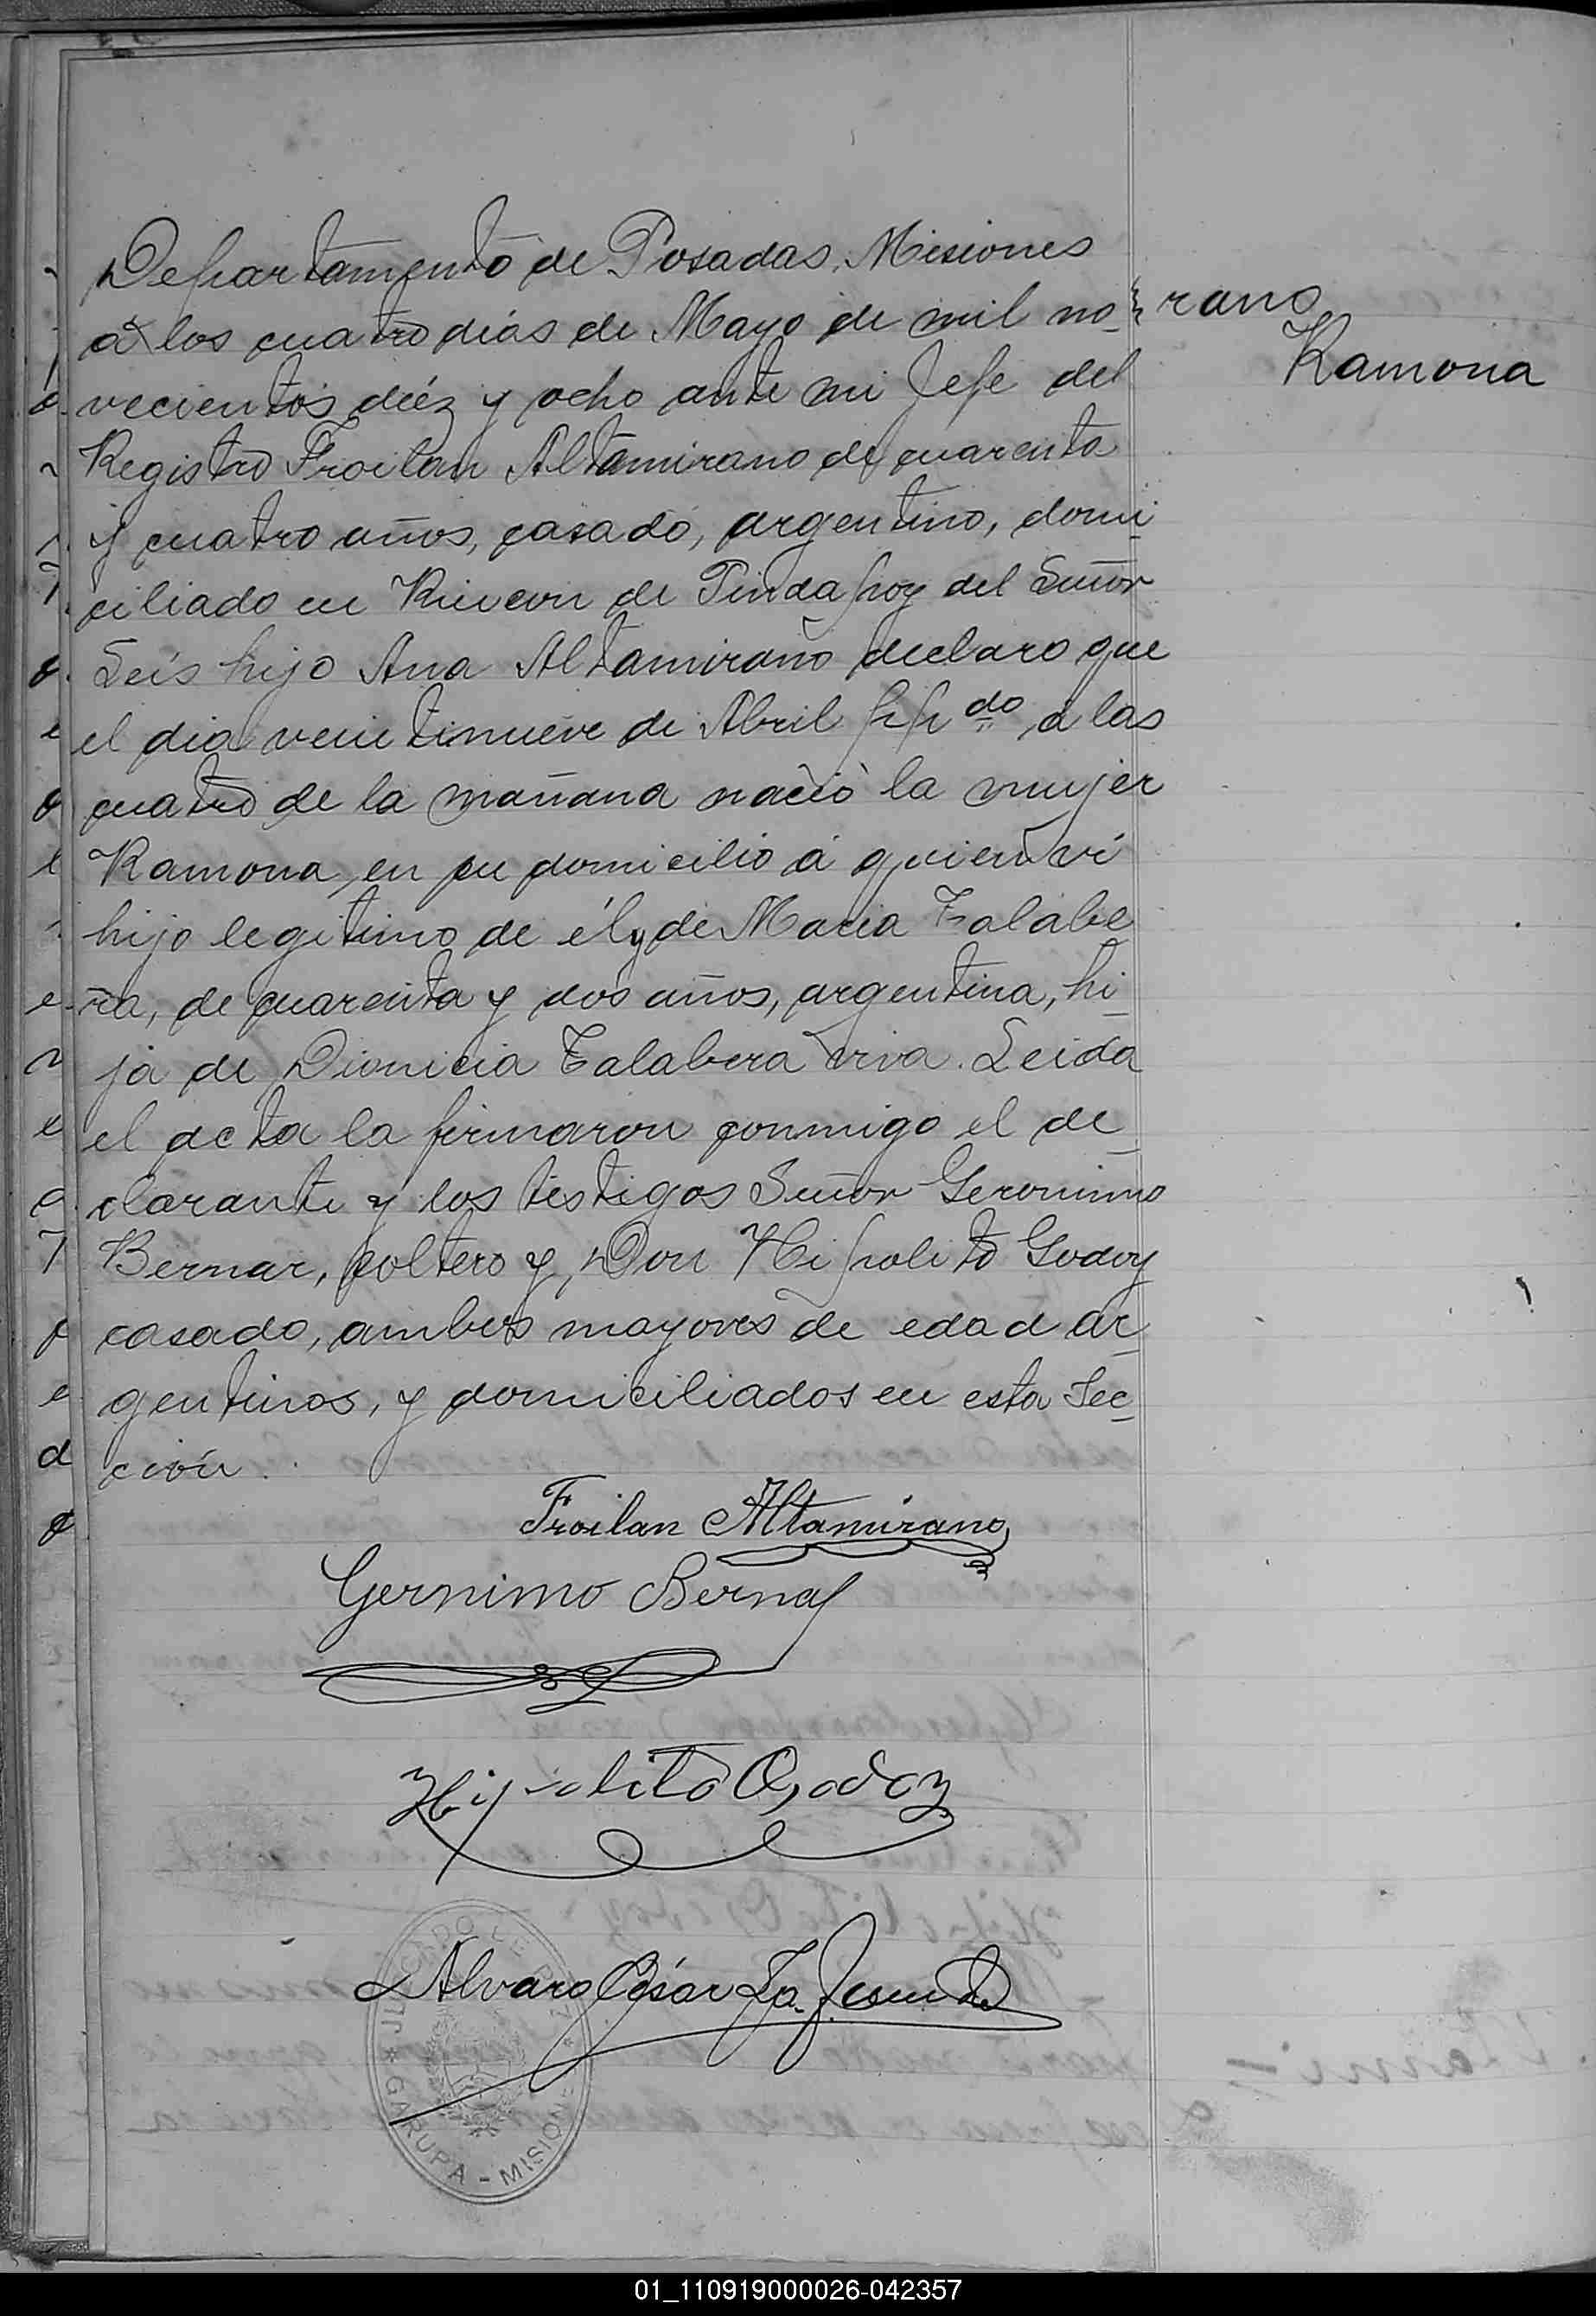 Departamento de Posadas, Misiones
á los cuatro dias de Mayo de mil no-
rano
Ramona
vecientos diéz y ocho ante mi Jefe del
Registro Froilan Altamirano de cuarenta
y cuatro años, casado, argentino, domi-
ciliado en Rincon de Pindapoy del Señor
Leis hijo Ana Altamirano declaro que
el dia veintinueve de Abril ppdo á las
cuatro de la mañana nació la mujer
Ramona, en su domicilio á quien ví
hijo legitimo de él y de Maria Talabe
ra, de cuarenta y dos años, argentina, hi-
ja de Dionicia Talabera viva. Leida
el acta la firmaron conmigo el de-
clarante y los testigos Señor Geronimo
Bernar, soltero y, Don Hipolito Godoy
casado, ambos mayores de edad ar-
gentinos, y domiciliados en esta Sec-
ción.
Froilan Altamirano
Gernimo Bernal
Hipolito Godoy
Alvaro César La
GARUPA - MISIONES
01_110919000026-042357